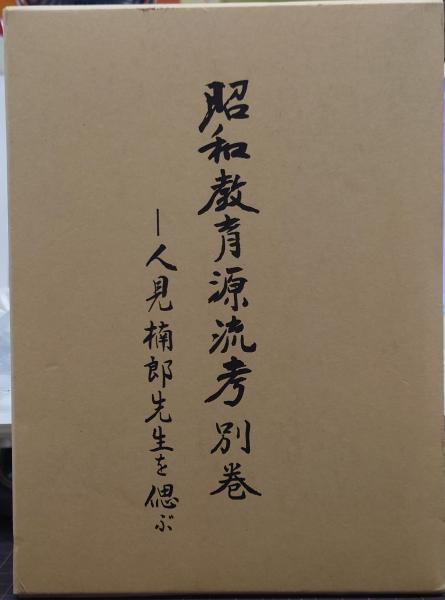 昭和教育源流考 別巻
―人見楠郎先生を偲ぶ